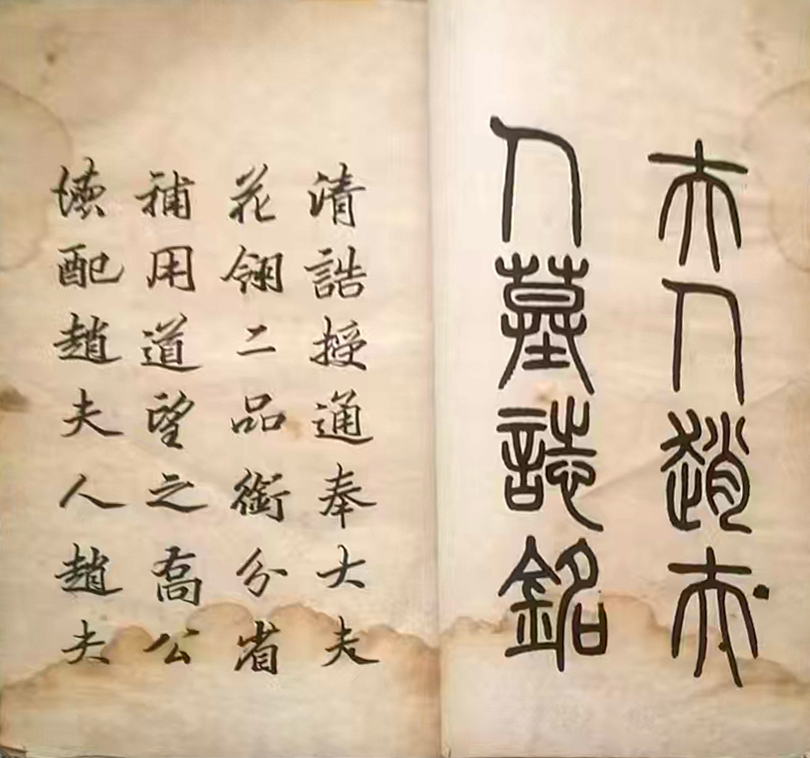 夫人趙夫
人墓誌銘
清誥授通奉大夫
花翎二品銜分省
補用道望之喬公
德配趙夫人趙夫